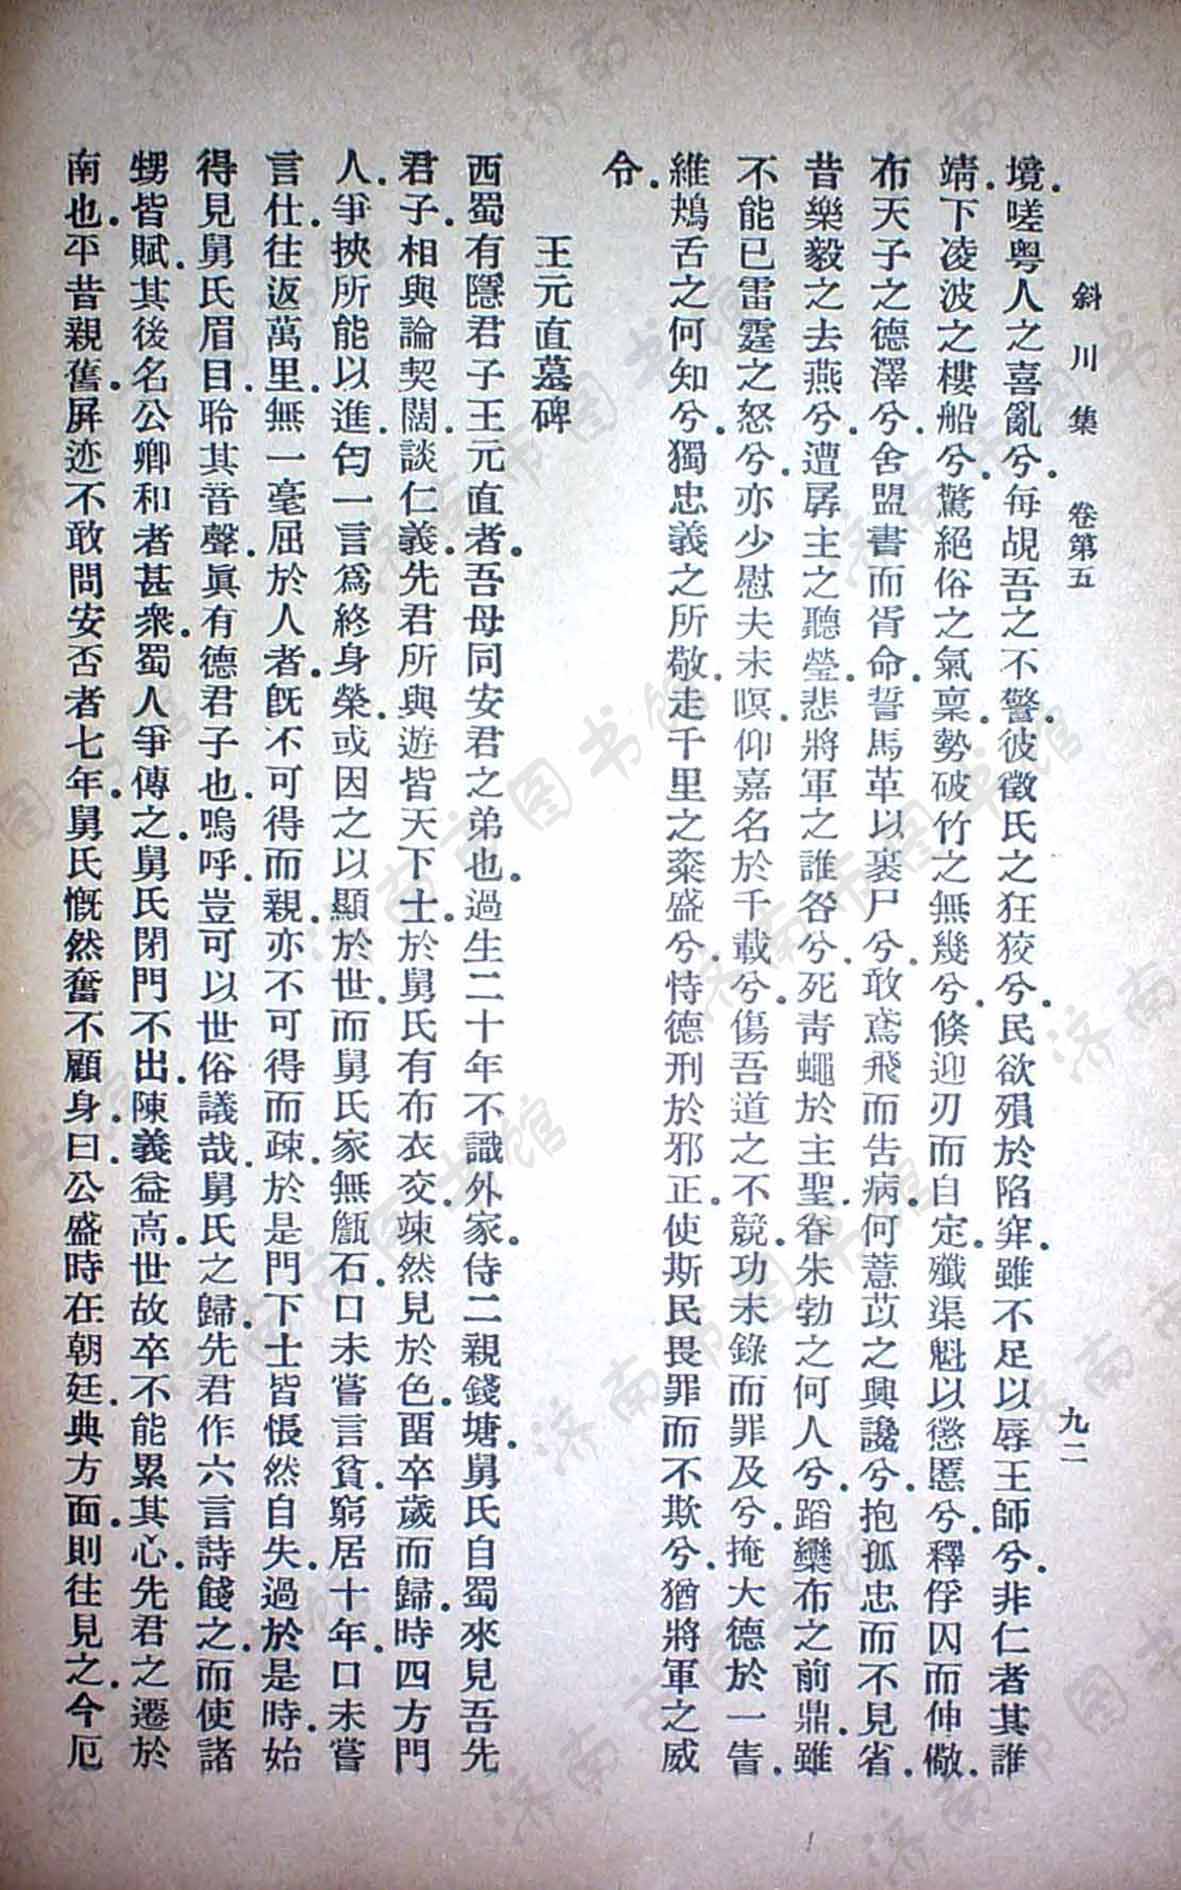 斜川集　卷第五　九二
境。嗟粤人之喜亂兮。每覘吾之不警。彼徵氏之狂狡兮。民欲殞於陷穽。雖不足以辱王師兮。非仁者其誰
靖。下凌波之樓船兮。驚絕俗之氣稟。勢破竹之無幾兮。倏迎刃而自定。殲渠魁以懲慝兮。釋俘囚而仲儆。
布天子之德澤兮。舍盟書而胥命。誓馬革以裹尸兮。敢鳶飛而告病。何薏苡之興讒兮。抱孤忠而不見省。
昔樂毅之去燕兮。遭孱主之聽瑩。悲將軍之誰咎兮。死靑蠅於主聖。眷朱勃之何人兮。蹈欒布之前鼎。雖
不能已雷霆之怒兮。亦少慰夫未暝。仰嘉名於千載兮。傷吾道之不競。功未錄而罪及兮。掩大德於一眚。
維鴂舌之何知兮。獨忠義之所敬。走千里之粢盛兮。恃德刑於邪正。使斯民畏罪而不欺兮。猶將軍之威
令。
王元直墓碑
西蜀有隱君子王元直者。吾母同安君之弟也。過生二十年不識外家。侍二親錢塘。舅氏自蜀來見吾先
君子。相與論契闊。談仁義。先君所與遊皆天下士。於舅氏有布衣交。竦然見於色。畱卒歲而歸。時四方門
人。爭挾所能以進。匄一言爲終身榮。或因之以顯於世。而舅氏家無甔石。口未嘗言貧。窮居十年。口未嘗
言仕。往返萬里。無一毫屈於人者。旣不可得而親。亦不可得而疎。於是門下士皆悵然自失。過於是時。始
得見舅氏眉目。聆其音聲。眞有德君子也。嗚呼。豈可以世俗議哉。舅氏之歸。先君作六言詩餞之。而使諸
甥皆賦。其後名公卿和者甚衆。蜀人爭傳之。舅氏閉門不出。陳義益高。世故卒不能累其心。先君之遷於
南也。平昔親舊。屏迹不敢問安否者七年。舅氏慨然奮不顧身。曰。公盛時在朝廷。典方面。則往見之。今厄